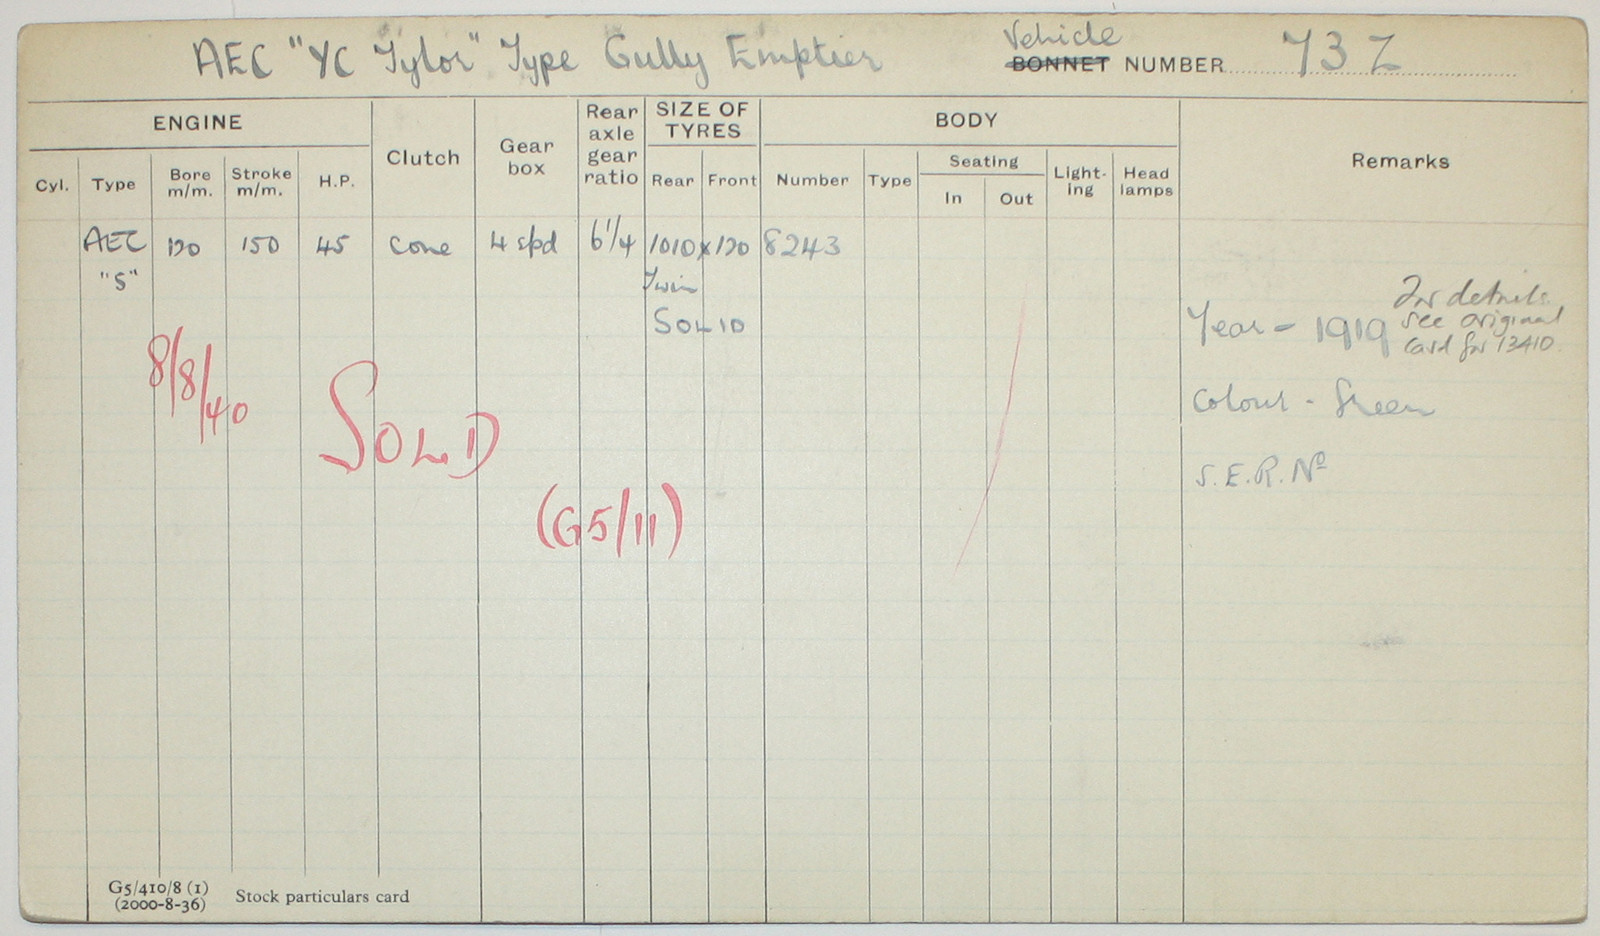 AEC "YC Tylor" Type Gully Emptier
Vehicle
BONNET NUMBER 73 Z
ENGINE
Cyl.
Type
Bore m/m.
Stroke m/m.
H.P.
Clutch
Gear box
Rear axle gear ratio
SIZE OF TYRES
Rear
Front
BODY
Number
Type
Seating
In
Out
Light-ing
Head lamps
Remarks
AEC "S"
120
150
45
Cone
4 spd
6 1/4
1010 x 120
Twin
SOLID
8243
Year - 1919
For details
see original
card for 13410.
Colour - Green
S.E.R. No
8/8/40
SOLD
(G5/11)
G5/410/8 (1)
(2000-8-36)
Stock particulars card